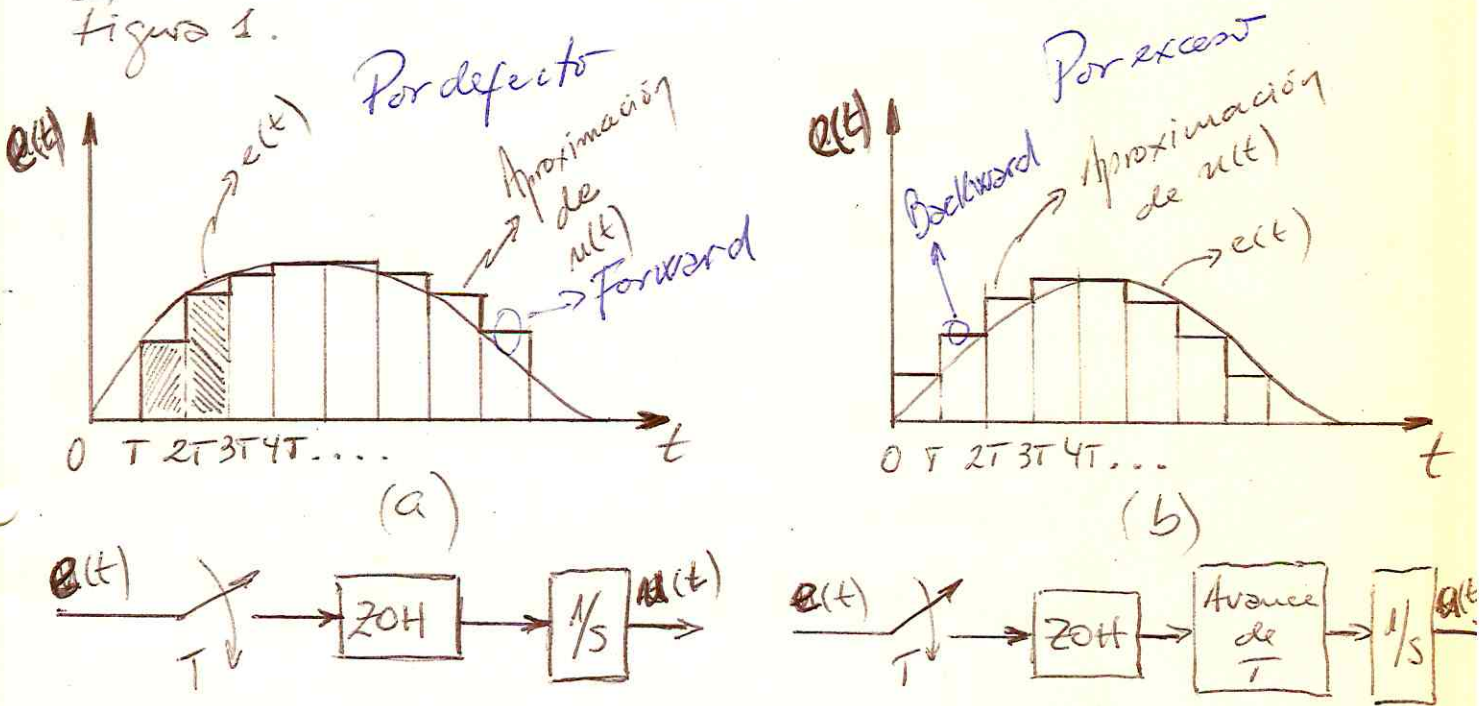 Figura 1.
Por defecto
e(t)
e(t)
Aproximación
de
u(t)
Forward
0 T 2T 3T 4T....
t
(a)
e(t)
T
ZOH
1/s
u(t)
Por exceso
e(t)
Backward
Aproximación
de u(t)
e(t)
0 T 2T 3T 4T...
t
(b)
e(t)
T
ZOH
Avance
de
T
1/s